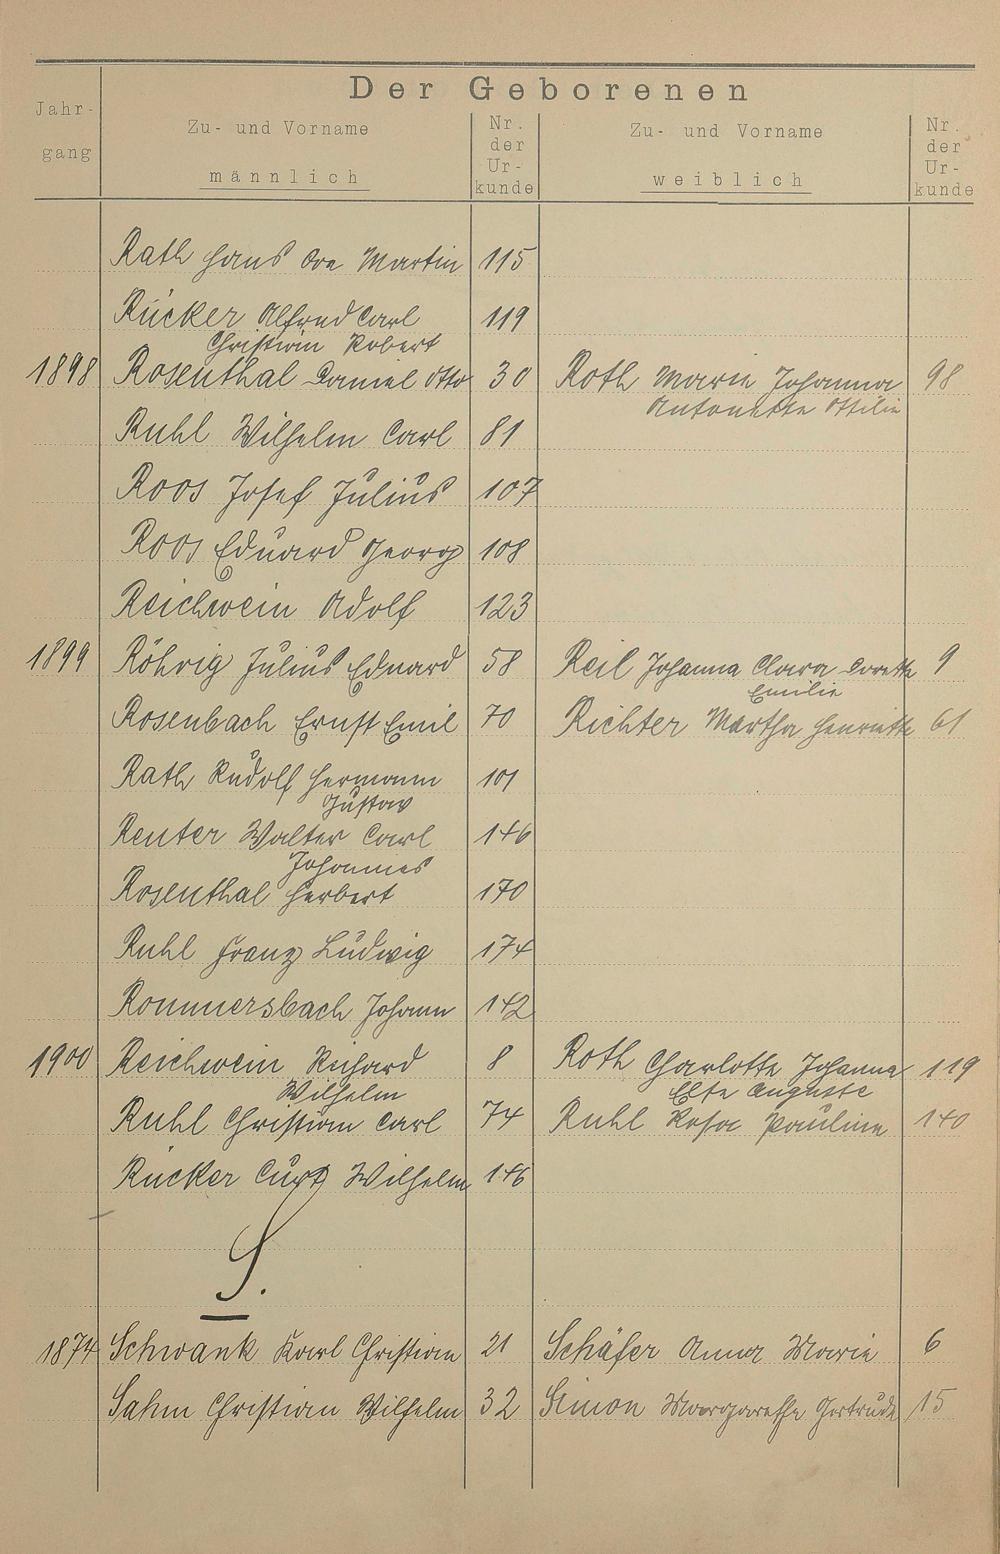 Der Geborenen
Jahr-
gang
Zu- und Vorname
männlich
Nr.
der
Ur-
kunde
Zu- und Vorname
weiblich
Nr.
der
Ur-
kunde
Rath Hans Martin 115
Rücker Alfred Carl 119
Christian Robert
1898 Rosenthal Daniel Otto 30 Roth Marie Johanna 98
Antonette Ottilie
Ruhl Wilhelm Carl 81
Roos Josef Julius 107
Roos Eduard Georg 108
Reichwein Adolf 123
1899 Röhrig Julius Eduard 58 Reil Johanna Clara Dorette 9
Emilie
Rosenbach Ernst Emil 70 Richter Martha Henriette 61
Rath Rudolf Hermann 101
Gustav
Reuter Walter Carl 146
Johannes
Rosenthal Herbert 170
Ruhl Franz Ludwig 174
Rommersbach Johann 142
1900 Reichwein Richard 8 Roth Charlotte Johanna 119
Wilhelm Auguste
Ruhl Christian Carl 74 Ruhl Rosa Pauline 140
Rücker Curt Wilhelm 146
S.
1874 Schwank Karl Christian 21 Schäfer Anna Marie 6
Sahm Christian Wilhelm 32 Simon Margarethe Gertrude 15